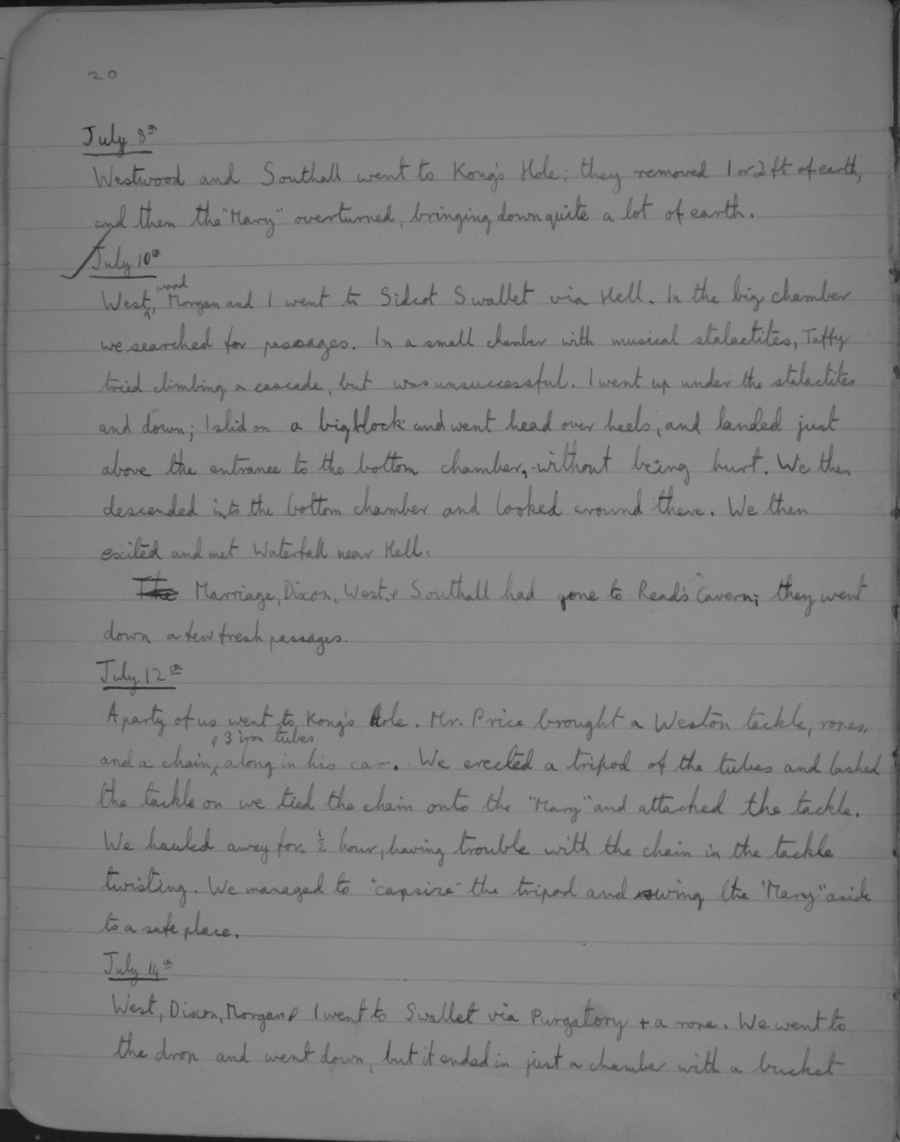 20
July 8th
Westwood and Southall went to Kong's Hole; they removed 1 or 2 ft of earth,
and then the "Mary" overturned, bringing down quite a lot of earth.
July 10th
Westwood, Morgan and I went to Sidcot Swallet via Hell. In the big chamber
we searched for passages. In a small chamber with musical stalactites, Taffy
tried climbing a cascade, but was unsuccessful. I went up under the stalactites
and down; I slid on a big block and went head over heels, and landed just
above the entrance to the bottom chamber, without being hurt. We then
descended into the bottom chamber and looked around there. We then
exited and met Waterfall near Hell.
The Marriage, Dixon, West, & Southall had gone to Read's Cavern; they went
down a few fresh passages.
July 12th
A party of us went to Kong's Hole. Mr. Price brought a Weston tackle, ropes,
and a chain, & 3 iron tubes along in his car. We erected a tripod of the tubes and lashed
the tackle on we tied the chain onto the "Mary" and attached the tackle.
We hauled away for ½ hour, having trouble with the chain in the tackle
twisting. We managed to "capsize" the tripod and swing the "Mary" aside
to a safe place.
July 14th
West, Dixon, Morgan & I went to Swallet via Purgatory + a rope. We went to
the drop and went down, but it ended in just a chamber with a bucket